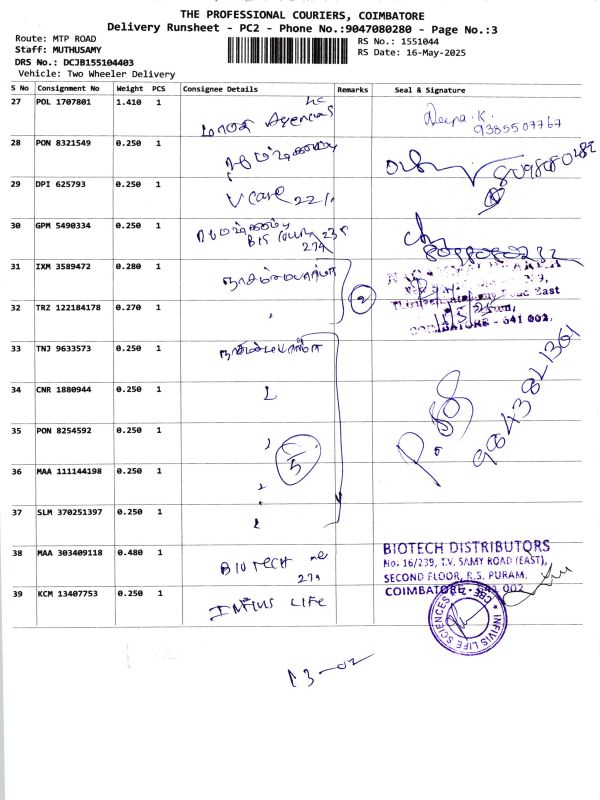 THE PROFESSIONAL COURIERS, COIMBATORE
Delivery Runsheet - PC2 - Phone No.:9047080280 - Page No.:3
Route: MTP ROAD
Staff: MUTHUSAMY
DRS No.: DCJB155104403
Vehicle: Two Wheeler Delivery
RS No.: 1551044
RS Date: 16-May-2025
S No Consignment No Weight PCS Consignee Details Remarks Seal & Signature
27 POL 1707801 1.410 1 Agencies Deepa.K. 9385507767
28 PON 8321549 0.250 1
29 DPI 625793 0.250 1 V Care
30 GPM 5490334 0.250 1
31 IXM 3589472 0.280 1
2
32 TRZ 122184178 0.270 1
COIMBATORE - 641 002
33 TNJ 9633573 0.250 1
34 CNR 1880944 0.250 1
9843821361
35 PON 8254592 0.250 1
5
36 MAA 111144198 0.250 1
37 SLM 370251397 0.250 1
38 MAA 303409118 0.480 1 BIOTECH
BIOTECH DISTRIBUTORS
No. 16/239, T.V. SAMY ROAD (EAST),
SECOND FLOOR, R.S. PURAM.
COIMBATORE - 641 002
39 KCM 13407753 0.250 1 INFIVIS LIFE
INFIVIS LIFE SCIENCES CBE - 2